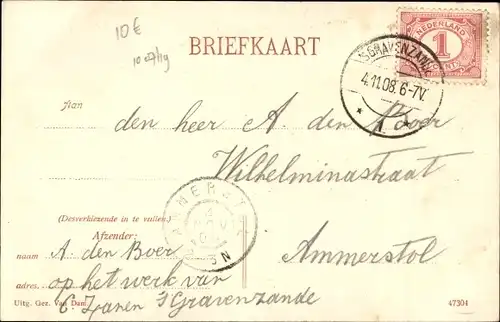 10€
BRIEFKAART
NEDERLAND
1
CENT
'SGRAVENZANDE
4.11.08.6-7V.
* 1 *
Aan
den heer A. den Boer
Wilhelminastraat
Ammerstol
(Desverkiezende in te vullen)
Afzender:
naam A. den Boer
adres. op het werk van
C. Zanen 'sGravenzande
Uitg. Gez. Van Dam.
47304